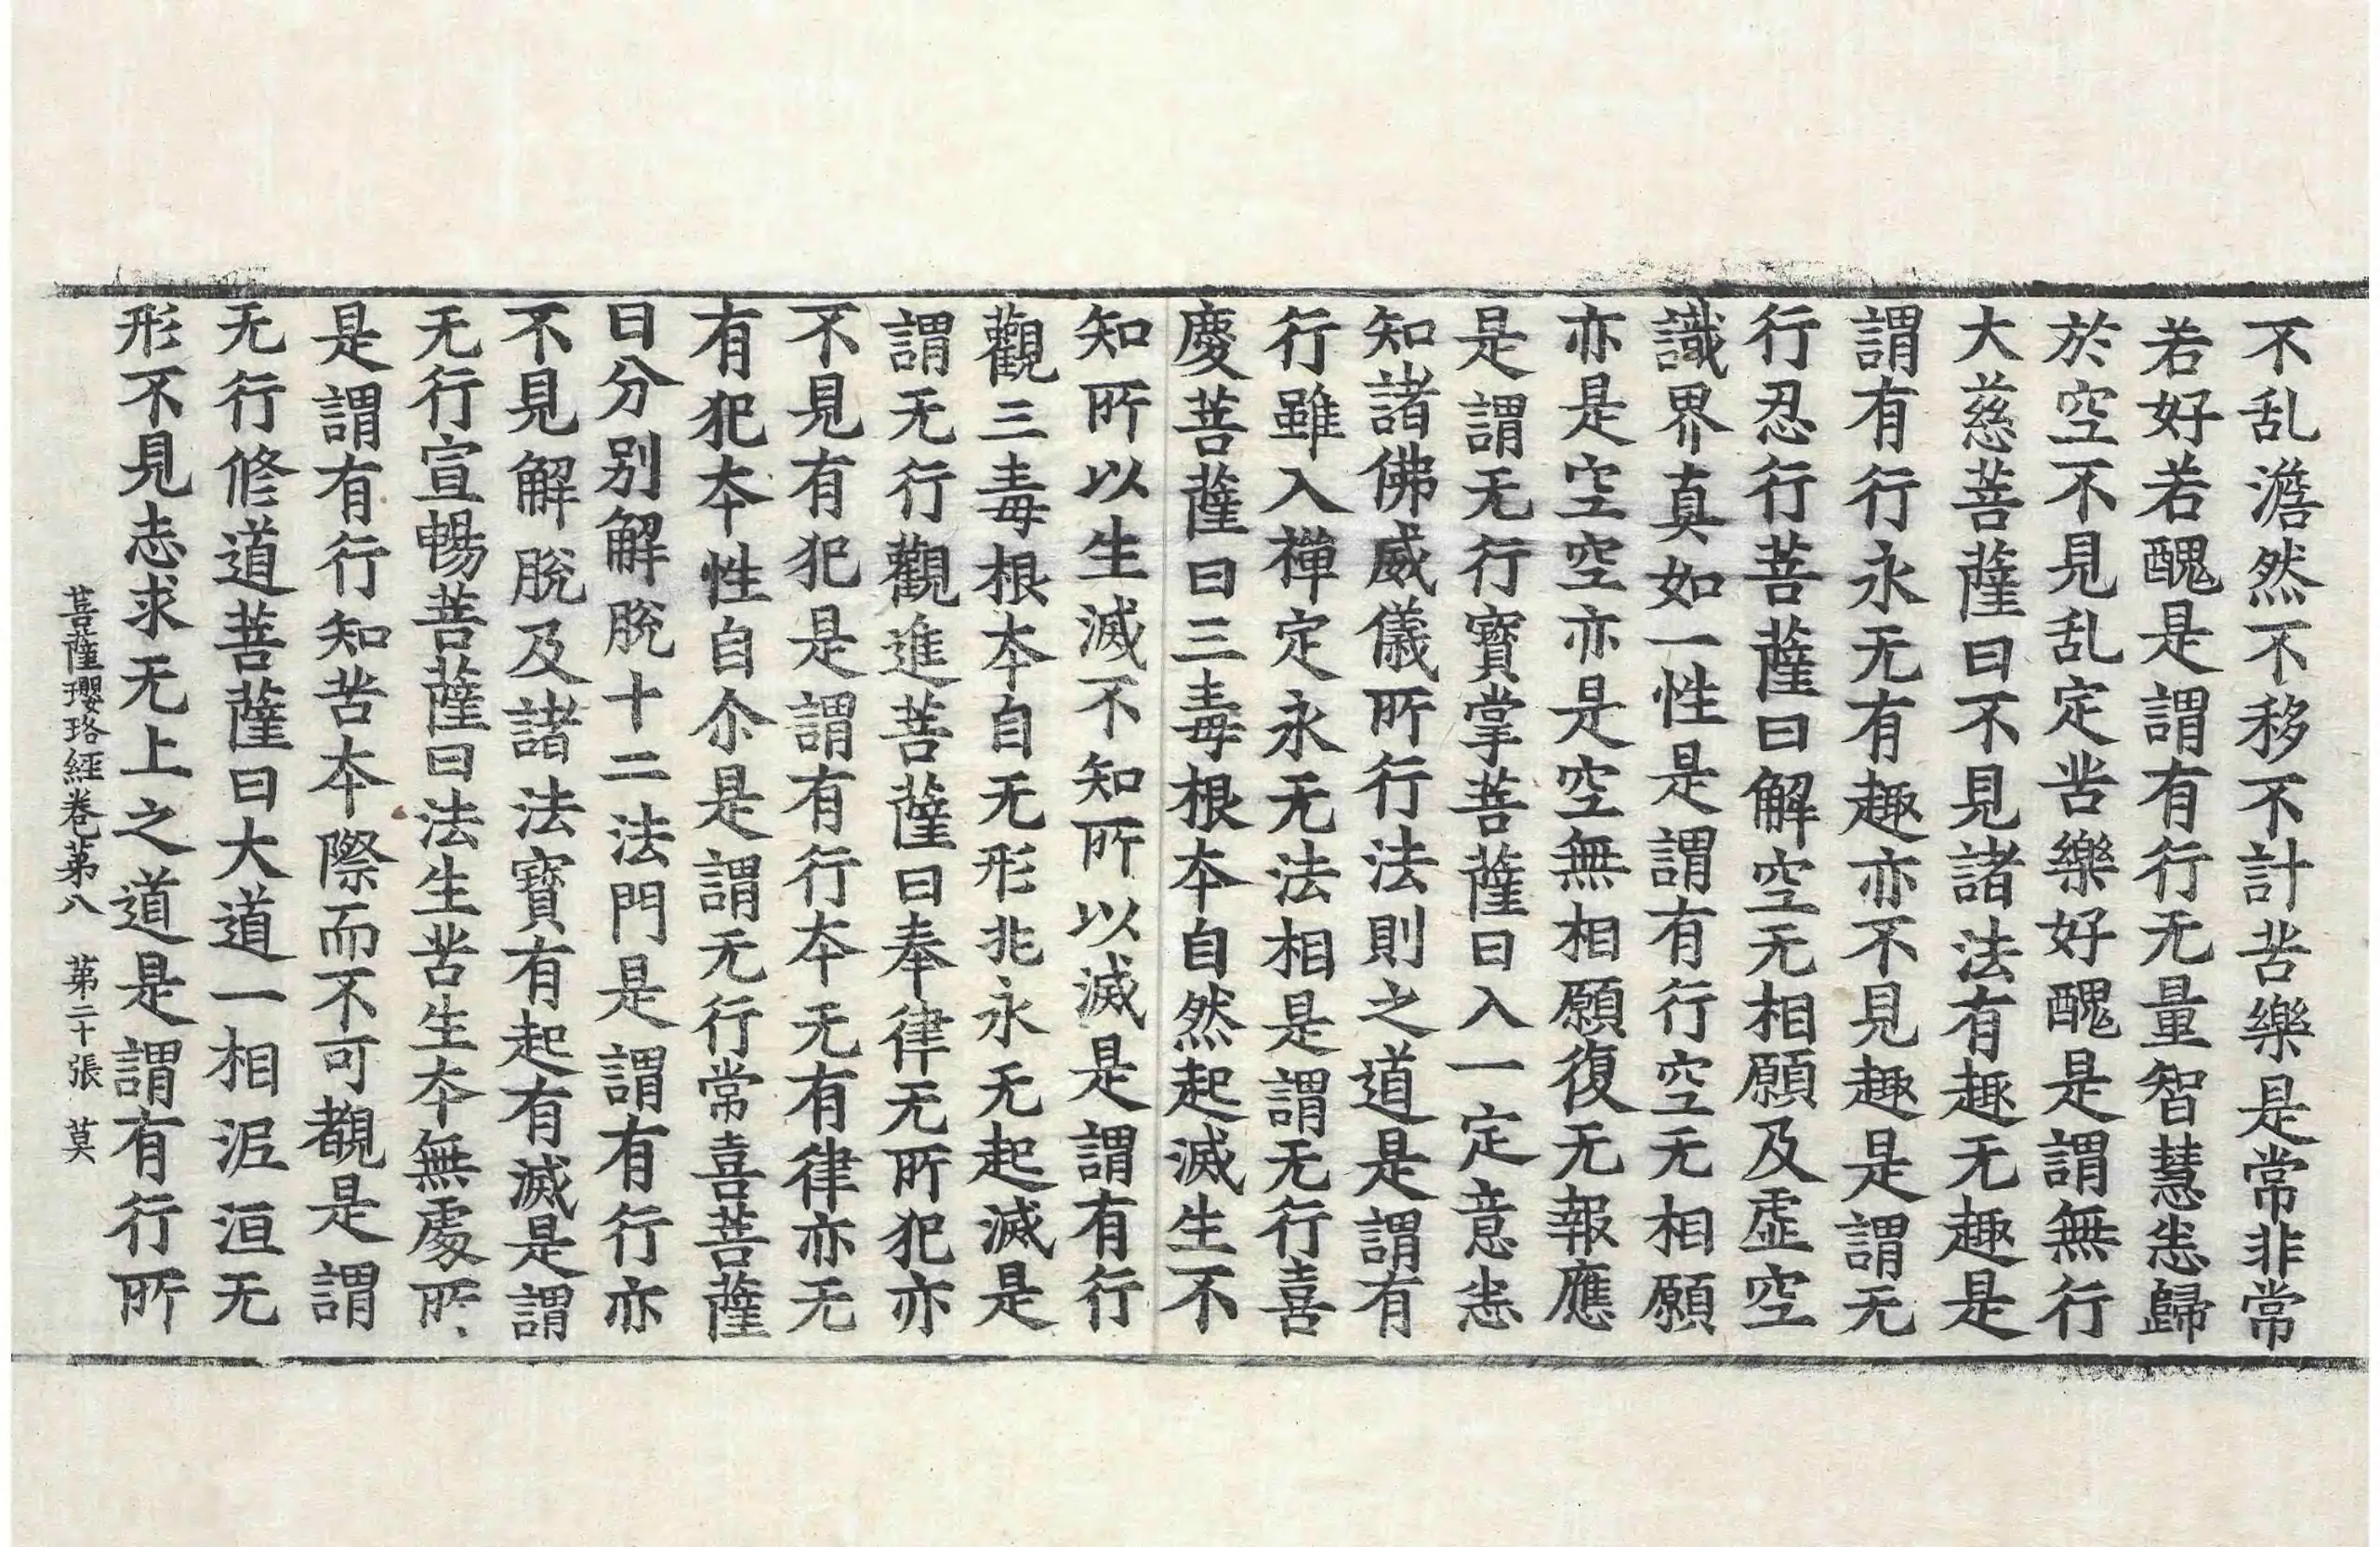 不乱澹然不移不計苦樂是常非常
若好若醜是謂有行无量智慧悉歸
於空不見乱定苦樂好醜是謂無行
大慈菩薩曰不見諸法有趣无趣是
謂有行永无有趣亦不見趣是謂无
行忍行菩薩曰解空无相願及虚空
識界真如一性是謂有行空无相願
亦是空空亦是空無相願復无報應
是謂无行寳掌菩薩曰入一定意悉
知諸佛威儀所行法則之道是謂有
行雖入禪定永无法相是謂无行喜
慶菩薩曰三毒根本自然起滅生不
知所以生滅不知所以滅是謂有行
觀三毒根本自无形兆永无起滅是
謂无行觀進菩薩曰奉律无所犯亦
不見有犯是謂有行本无有律亦无
有犯本性自尒是謂无行常喜菩薩
曰分别解脫十二法門是謂有行亦
不見解脫及諸法寳有起有滅是謂
无行宣暢菩薩曰法生苦生本無處所
是謂有行知苦本際而不可覩是謂
无行修道菩薩曰大道一相泥洹无
形不見志求无上之道是謂有行所
菩薩瓔珞經卷第八　第二十張　莫